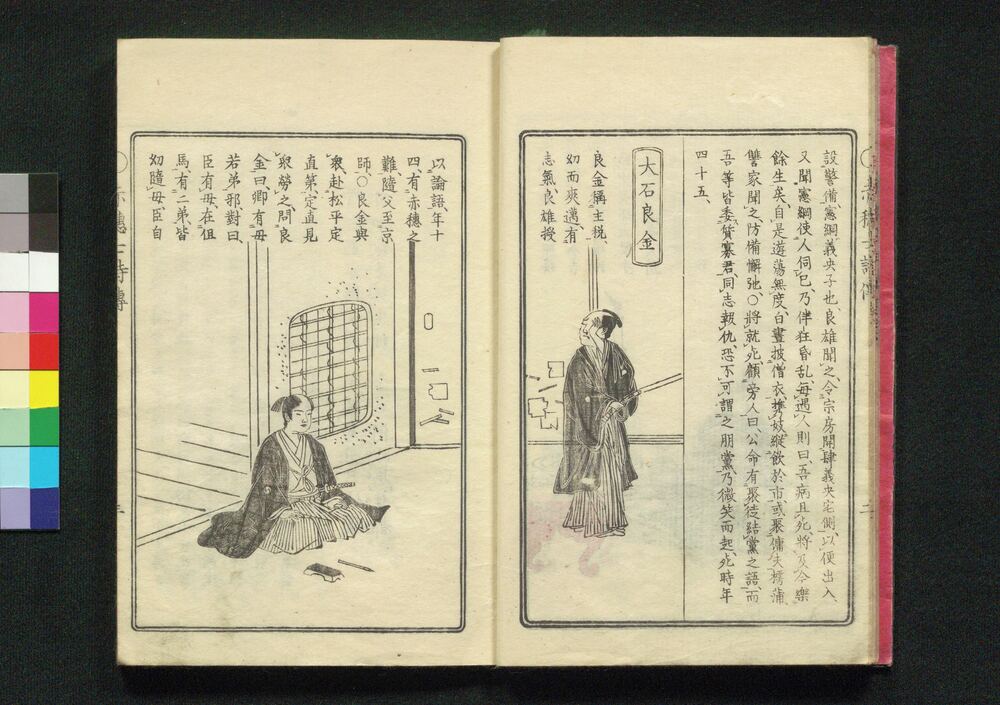 設警備、憲綱義央子也、良雄聞之、令宗房開肆義央宅側、以便出入、
又聞憲綱使人伺已、乃佯狂昏乱、每遇人則曰、吾病且死、將及今樂
餘生矣、自是遊蕩無度、白晝披僧衣、携妓縱飲於市、或聚傭夫樗蒲、
讐家聞之、防備懈弛、○將就死、顧旁人曰、公命有聚徒結黨之語、而
吾等皆委質寡君、同志報仇、恐不可謂之朋黨、乃微笑而起、死時年
四十五、
大石良金
良金稱主税、
幼而爽邁、有
志氣、良雄授
以論語、年十
四、有赤穗之
難、隨父至京
師、○良金與
衆赴松平定
直第、定直見
衆勞之、問良
金曰、卿有母
若弟邪、對曰、
臣有母、在但
馬、有二弟、皆
幼隨母、臣自
赤穗士詩傳